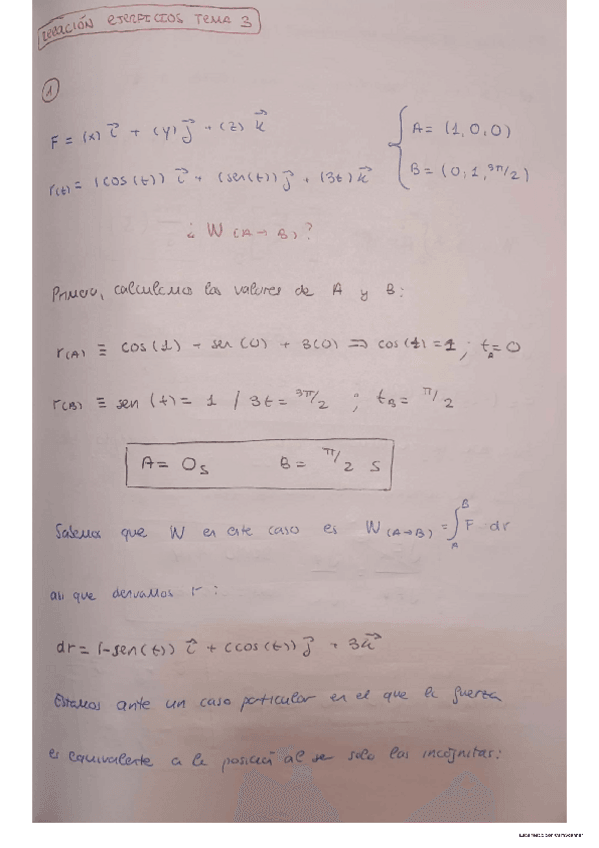 RELACIÓN EJERCICIOS TEMA 3
1
F = (x) i + (y) j + (z) k
A = (1,0,0)
r(t) = (cos(t)) i + (sen(t)) j + (3t) k
B = (0,1,3π/2)
¿ W (A→B) ?
Primero, calculemos los valores de A y B:
r(A) ≡ cos(1) + sen(0) + 3(0) ⇒ cos(t) = 1 ; tA = 0
r(B) ≡ sen(t) = 1 / 3t = 3π/2 ; tB = π/2
A = 0s B = π/2 s
Sabemos que W en este caso es W(A→B) = ∫AB F dr
así que derivamos r:
dr = (-sen(t)) i + (cos(t)) j + 3k
Estamos ante un caso particular en el que la fuerza
es equivalente a la posición al ser solo las incógnitas: